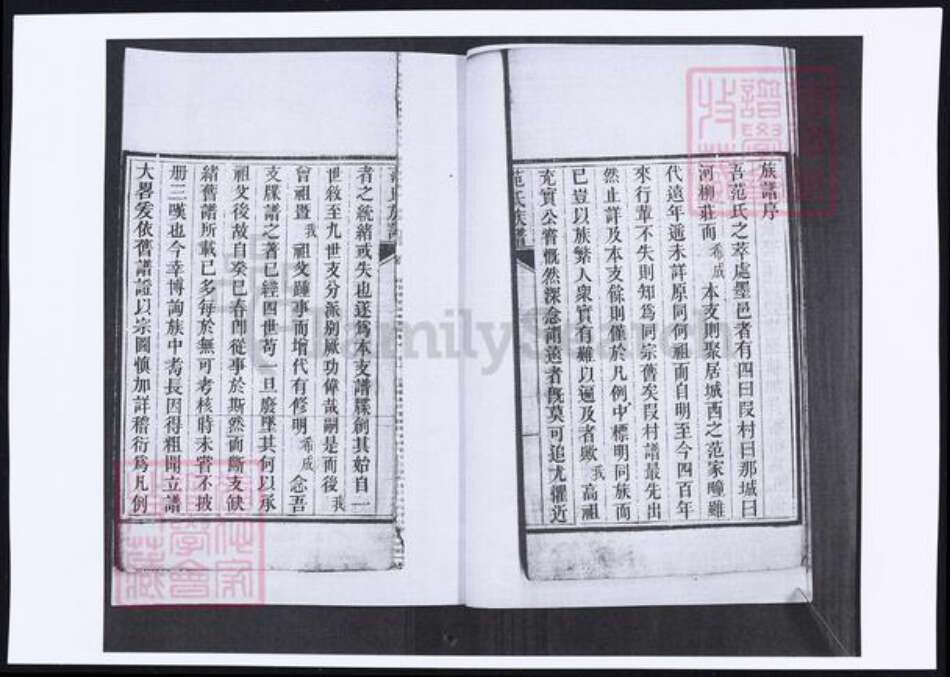 族譜序
吾范氏之萃處墨邑者有四曰叚村曰那城曰
河柳莊而希成本支則聚居城西之范家疃雖
代遠年遒未詳原同何祖而自明至今四百年
來行輩不失則知為同宗舊矣叚村譜最先出
然止詳及本支餘則僅於凡例中標明同族而
已豈以族繁人衆實有難以遍及者歟我高祖
充實公嘗慨然深念謂遠者旣莫可追尤懼近
范氏族譜
者之統緒或失也遂為本支譜牒創其始自一
世敘至九世支分派別厥功偉哉嗣是而後我
曾祖曁我祖父踵事而增代有修明希成念吾
支牒譜之著已經四世苟一旦廢墜其何以承
祖父後故自癸巳春卽從事於斯然而斷支缺
緒舊譜所載已多每於無可考核時未嘗不披
册三嘆也今幸博詢族中耆長因得粗聞立譜
大畧爰依舊譜證以宗圖愼加詳稽衍為凡例
FamilySearch